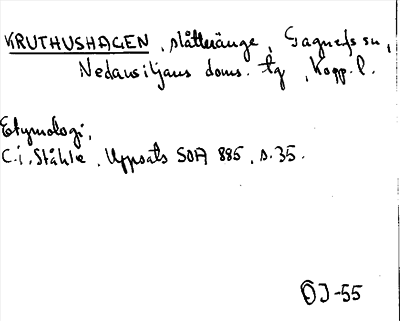 KRUTHUSHAGEN, slåtteränge, Gagnefs sn,
Nedansiljans doms. tg, Kopp. l.
Etymologi,
C.i. Ståhle, Uppsats SOA 885, s. 35.
ÖJ-55